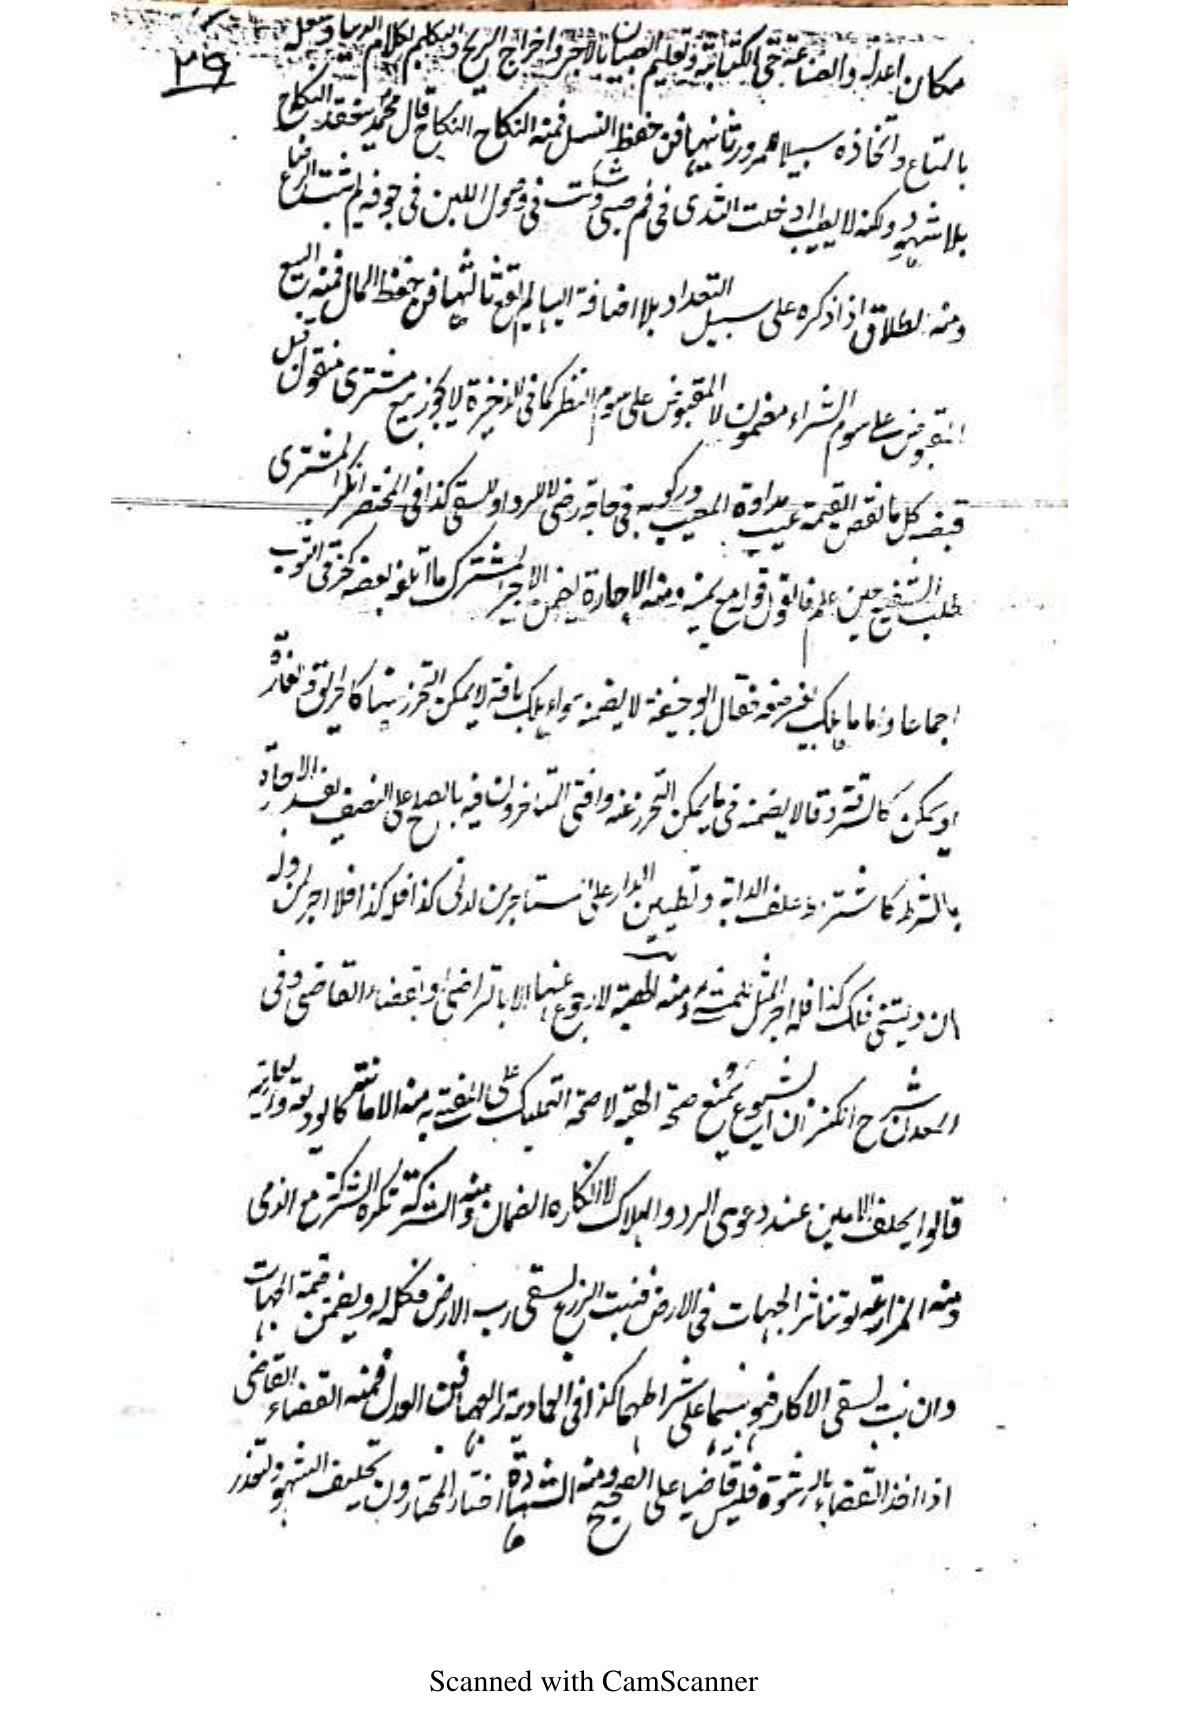 ٣٩
مكان اعدله والصناعة حتى الكتابة وتعليم الصبيان بالاجر واخراج الريح والتكلم بكلام الدنيا وشغله
بالمتاع واتخاذه سبيلا للمرور ثانيها فن حفظ النسل فمنه النكاح النكاح قال محمد ينعقد النكاح
بلا شهود ولكنه لا ادخلت الثدى فى فم صبى وشكت فى وصول اللبن فى جوفه لم يثبت الرضاع
ومنه الطلاق اذا ذكره على سبيل التعداد بلا اضافة اليها لم تقع ثالثها فن حفظ المال فمنه البيع
المقبوض على سوم الشراء مضمون لا المقبوض على سوم النظر كما فى الذخيرة لا يجوز بيع مشترى منقول قبل
قبضه كل ما نقص القيمة عيب مداوة المعيب وركوبه فى حاجة رضى لا للرد او للسقى كذا فى المختصر انكر المشترى
طلب الشفيع حين علم فالقول قوله مع يمينه ومنه الاجارة يضمن الاجير المشترك ما تلف بعضه كخرق الثوب
اجماعا واما ما هلك بغير صنعه فقال ابو حنيفة لا يضمنه سواء هلك بافة لا يمكن التحرز منها كالحريق والغارة
او يمكن كالسرقة وقالا يضمنه فى ما يمكن التحرز عنه وافتى المتاخرون فيه بالصلح على النصف تفسد الاجارة
بالشرط كاشتراط علف الدابة وتطيين الدار على المستاجر من دلنى كذا فله كذا فلا اجر لمن دله
ان دليتنى فلك كذا فله اجر المثل ومنه الهبة لا رجوع عنها الا بالتراضى او بقضاء القاضى وفى
المعدن شرح الكنز ان الشيوع يمنع صحة الهبة لا صحة التمليك على المفتى به ومنه الامانة كالوديعة والعارية
قالوا يحلف الامين عند دعوى الرد والهلاك لانكاره الضمان ومنه الشركة تكره الشركة مع الذمى
ومنه المزارعة لو تناثر الحبات فى الارض فنبت الزرع بسقى رب الارض فكله له ويضمن قيمة الحبات
وان نبت بسقى الاكار فهو بينهما على شراطهما كذا فى العمادية رابعها فن العدل فمنه القضاء القاضى
اذا اخذ القضاء بالرشوة فليس قاضيا على الصحيح ومنه الشهادة اختار المختارون تحليف الشهود لتعذر
Scanned with CamScanner